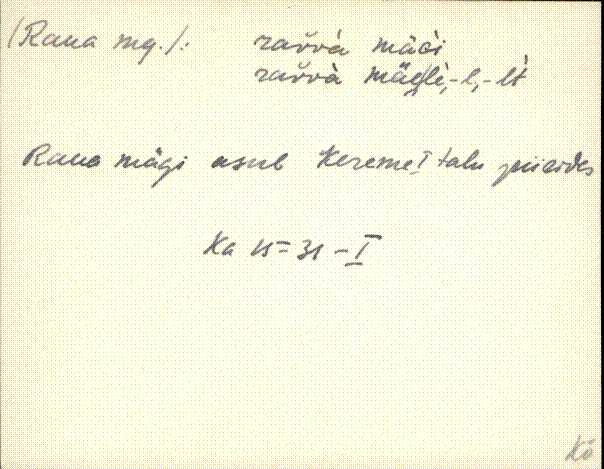 (Raua mg.): raŭvà mäǵi
raŭvà mäe̬/lè, -l, -lt
Raua mägi asub Kereme I talu piirides
Ka 15=31-I
Kõ